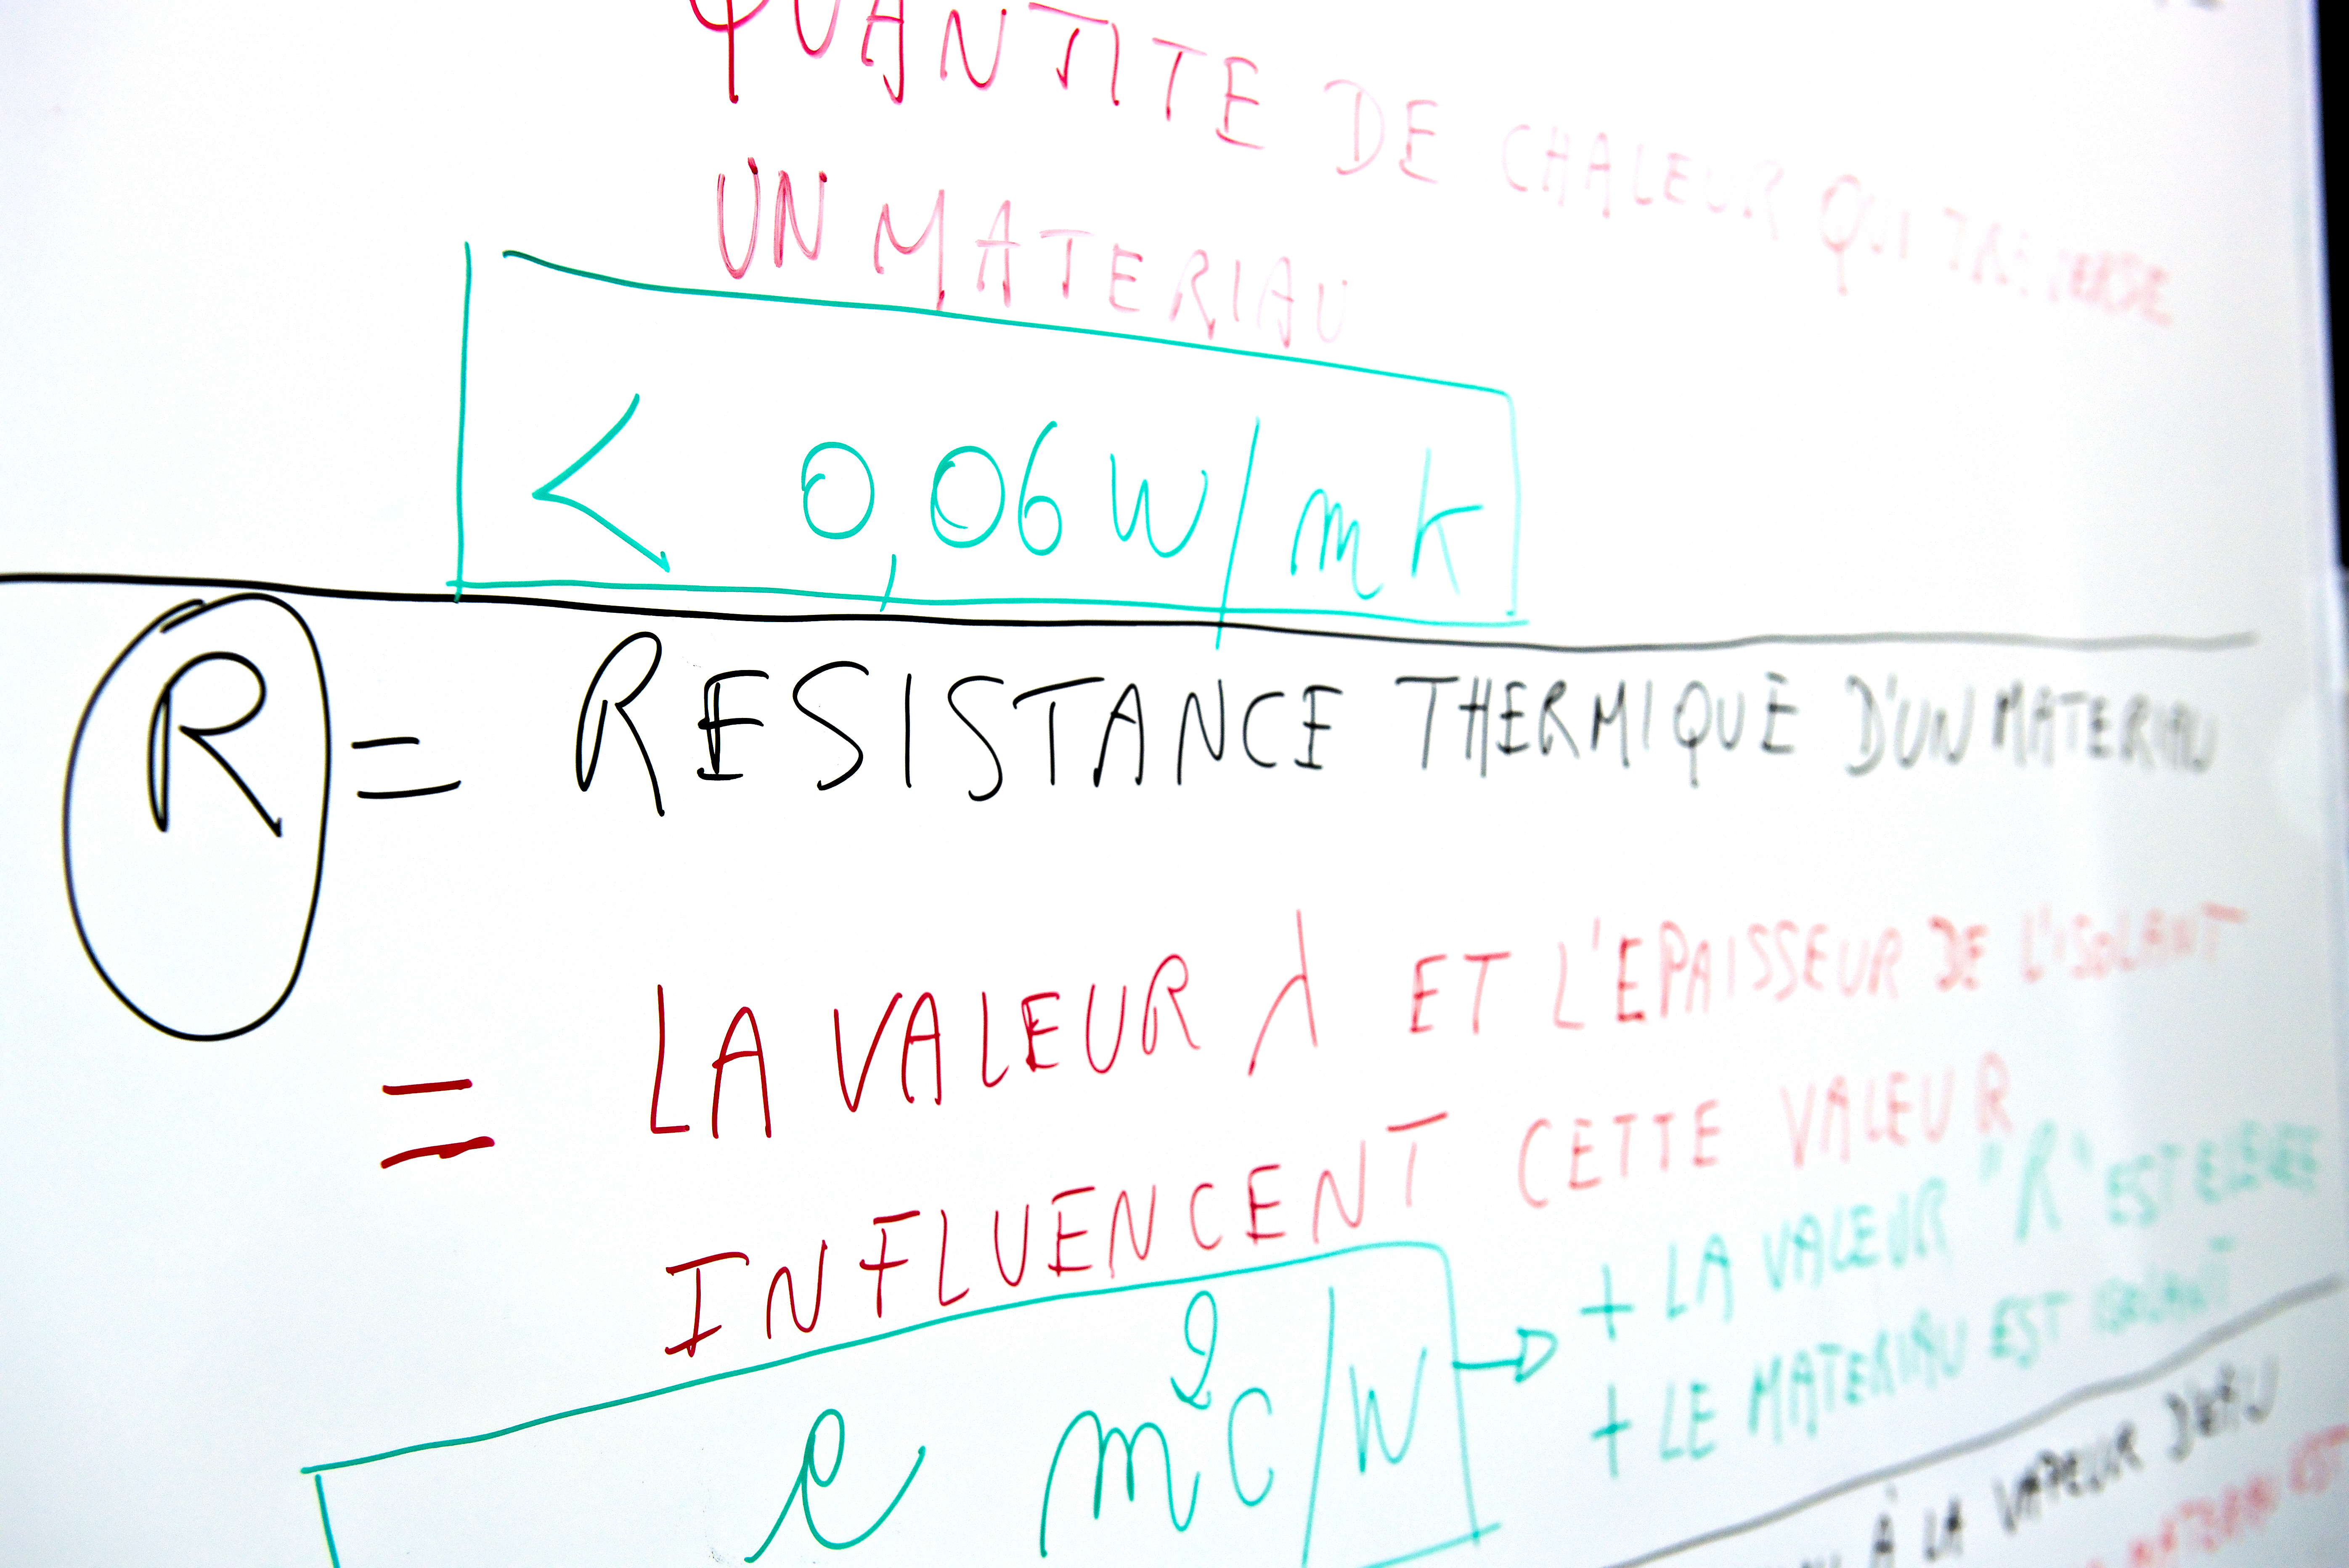 QUANTITE DE CHALEUR QUI TRAVERSE
UN MATERIAU
< 0,06 W/mk
R = RESISTANCE THERMIQUE D'UN MATERIAU
= LA VALEUR λ ET L'EPAISSEUR DE L'ISOLANT
INFLUENCENT CETTE VALEUR
+ LA VALEUR "R" EST ELEVEE
+ LE MATERIAU EST ISOLANT
e m²C/W
À LA VAPEUR D'EAU
EST